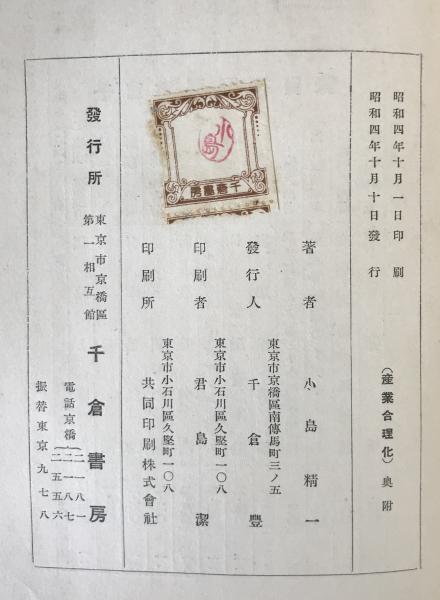 昭和四年十月一日印刷
昭和四年十月十日發行
(産業合理化)奥附
著者 小島精一
東京市京橋區南傳馬町三ノ五
發行人 千倉豐
東京市小石川區久堅町一〇八
印刷者 君島潔
東京市小石川區久堅町一〇八
印刷所 共同印刷株式會社
小島
千倉書房
發行所
東京市京橋區
第一相互館
千倉書房
電話京橋
二一八一
二一八七
二五五六
振替東京九七八